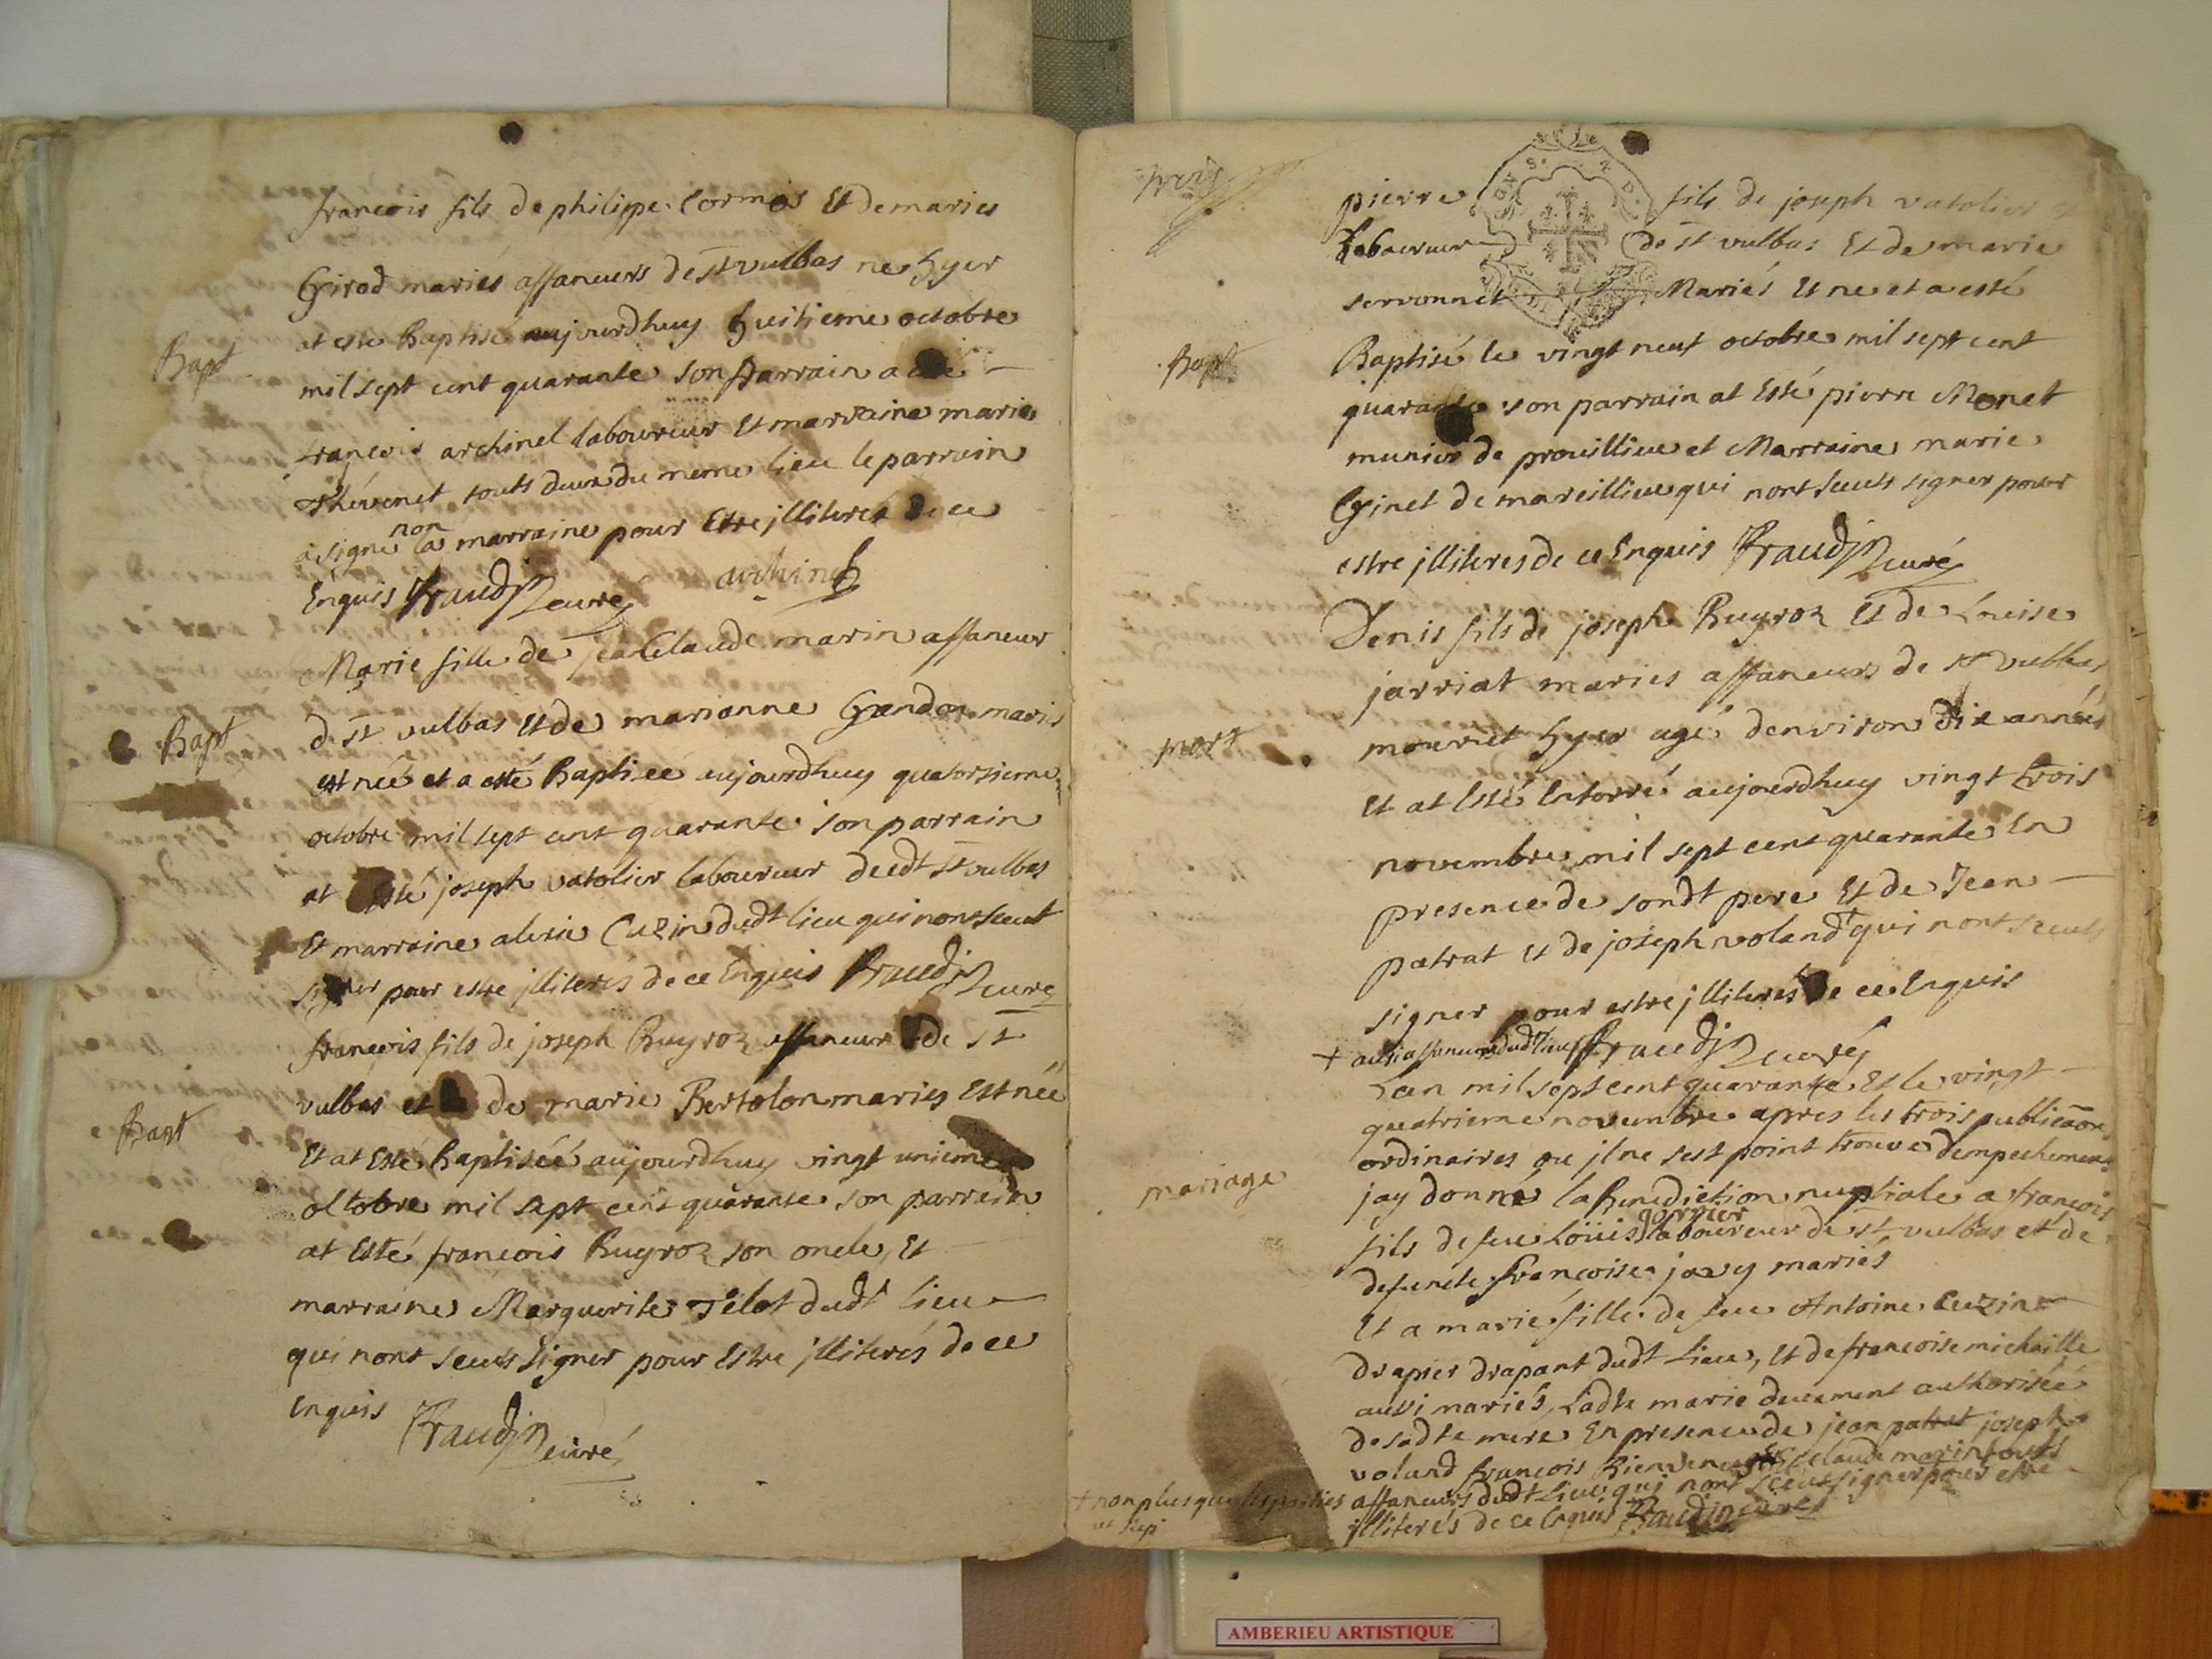 francois fils de philippe Cormos Et de maries
Girod mariés affaneurs de st vulbas ne hyer
at este Baptisé aujourdhuy huitieme octobre
Bapt
mil sept cent quarante son parrain a été
francois archinet laboureur Et marraine marie
thévenet touts deux du meme lieu le parrain
a signé non la marraine pour Etre jlliterés de ce
Enquis Fraudin curé archinet
Marie fille de jean Claude marin affaneur
Bapt
d st vulbas Et de marianne Grandon maries
est née et a esté Baptisée aujourdhuy quatorsieme
octobre mil sept cent quarante son parrain
at Esté joseph vatolier laboureur de cedt st vulbas
Et marraine alexie Cuzin dudt lieu qui nont sceut
signer pour estre jlliterés de ce Enquis Fraudin curé
francois fils de joseph Ruyroz affaneur de st
vulbas et de marie Bertolon maries Est née
Bapt
Et at Esté Baptiséé aujourdhuy vingt unieme
octobre mil sept cent quarante son parrain
at Esté francois Ruyroz son oncle, Et
marraine Marguerite Télot dudt lieu
qui nont sceuts signer pour Estre jlliterés de ce
Enquis
Fraudin curé
pierre fils de joseph vatolier
Laboureur de st vulbas Et de marie
servonnet Mariés Et ne et a esté
Bapt
Baptisé le vingt neuf octobre mil sept cent
quarante son parrain at Esté pierre Monet
munier de prouillieu et Marraine marie
Ginet de mareillieu qui nont sceuts signer pour
estre jlliteres de ce Enquis Fraudin curé
Denis fils de joseph Ruyroz Et de Louise
jarriat maries affaneurs de st vulbas
mort
mourut hyer agé denviron dix années
Et at Esté Enterré aujourdhuy vingt trois
novembre mil sept cent quarante En
presence de sondt pere Et de Jean
patrat et de joseph voland + qui nont sceuts
signer pour estre jlliterés de ce Enquis
+ aussi affaneurs dudt lieu Fraudin curé
Lan mil sept cent quarante Et le vingt
quatrieme novembre apres les trois publicãons
ordinaires ou jl ne sest point trouvé dempechement
mariage
jay donné la Benediction nuptiale a francois
fils de feu Loüis garnier laboureur de st vulbas et de
defuncte francoise joxy mariés
Et a marie fille de feu Antoine Cuzin
drapier drapant dudt Lieu, Et de francoise michaille
aussi mariés, Ladte marie deuement authorisée
de sadte mere En presence de jean patrat joseph
voland francois Bienvenu Et Claude marin touts
+ non plus que les parties affaneurs dudt Lieu qui nont sceut signer pour estre
jlliterés de ce Enquis Fraudin curé
AMBERIEU ARTISTIQUE